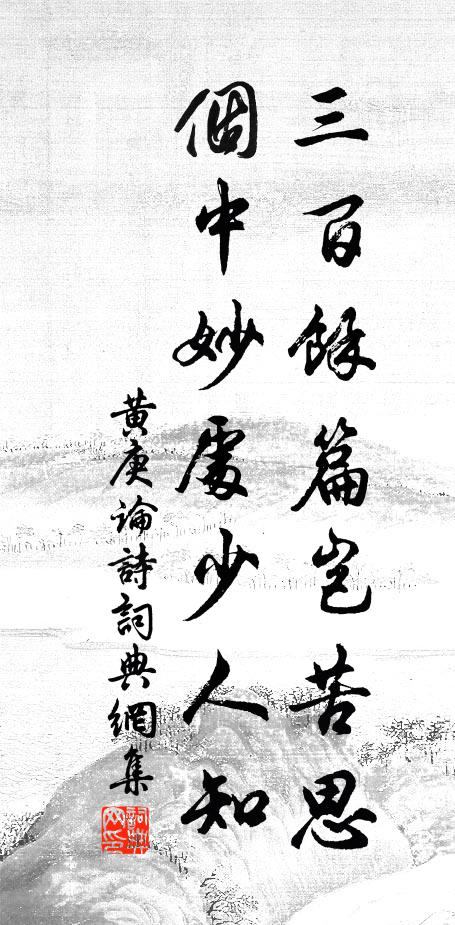 三百餘篇豈苦思
個中妙處少人知
黃庚論詩詞典網集